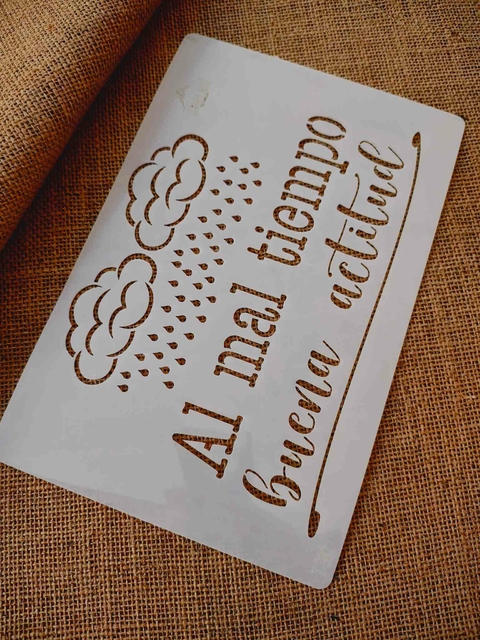 Al mal tiempo
buena actitud